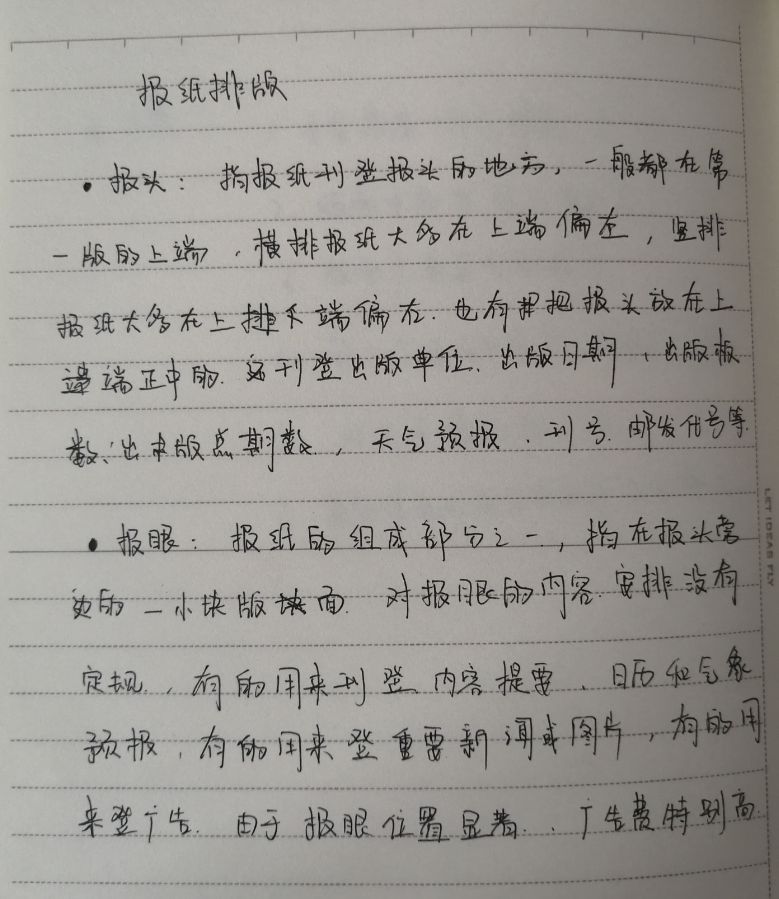 报纸排版
• 报头：指报纸刊登报头的地方，一般都在第
一版的上端，横排报纸大多在上端偏左，竖排
报纸大多在上端偏右.也有把报头放在上
端正中的.刊登出版单位、出版日期、出版板
数、出版总期数，天气预报、刊号.邮发代号等.
• 报眼：报纸的组成部分之一，指在报头旁
边的一小块版面.对报眼的内容.安排没有
定规，有的用来刊登内容提要、日历和气象
预报，有的用来登重要新闻或图片，有的用
来登广告.由于报眼位置显著.，广告费特别高
LET IDEAS FLY